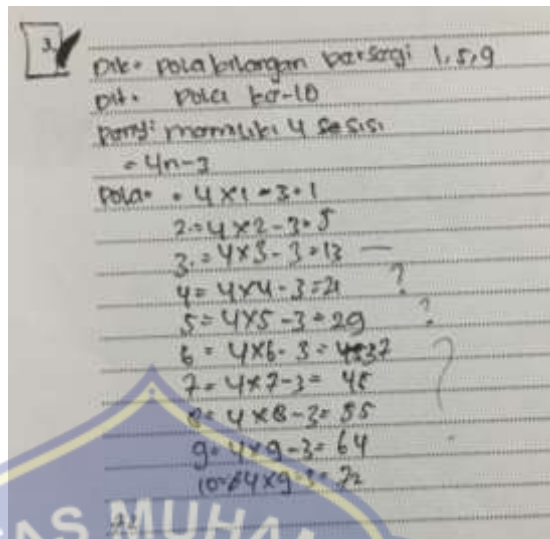 3.
Dik. Pola bilangan persegi 1,5,9
Dit. Pola ke-10
Peny: memiliki 4 sisi
= 4n-3
Pola = 4x1-3=1
2.=4x2-3=5
3.=4x3-3=13 —
4=4x4-3=21 ?
5=4x5-3=29 ?
6=4x6-3=37
7=4x7-3=45
8=4x8-3=55
9=4x9-3=64
10=4x9-3=72
AS MUHA